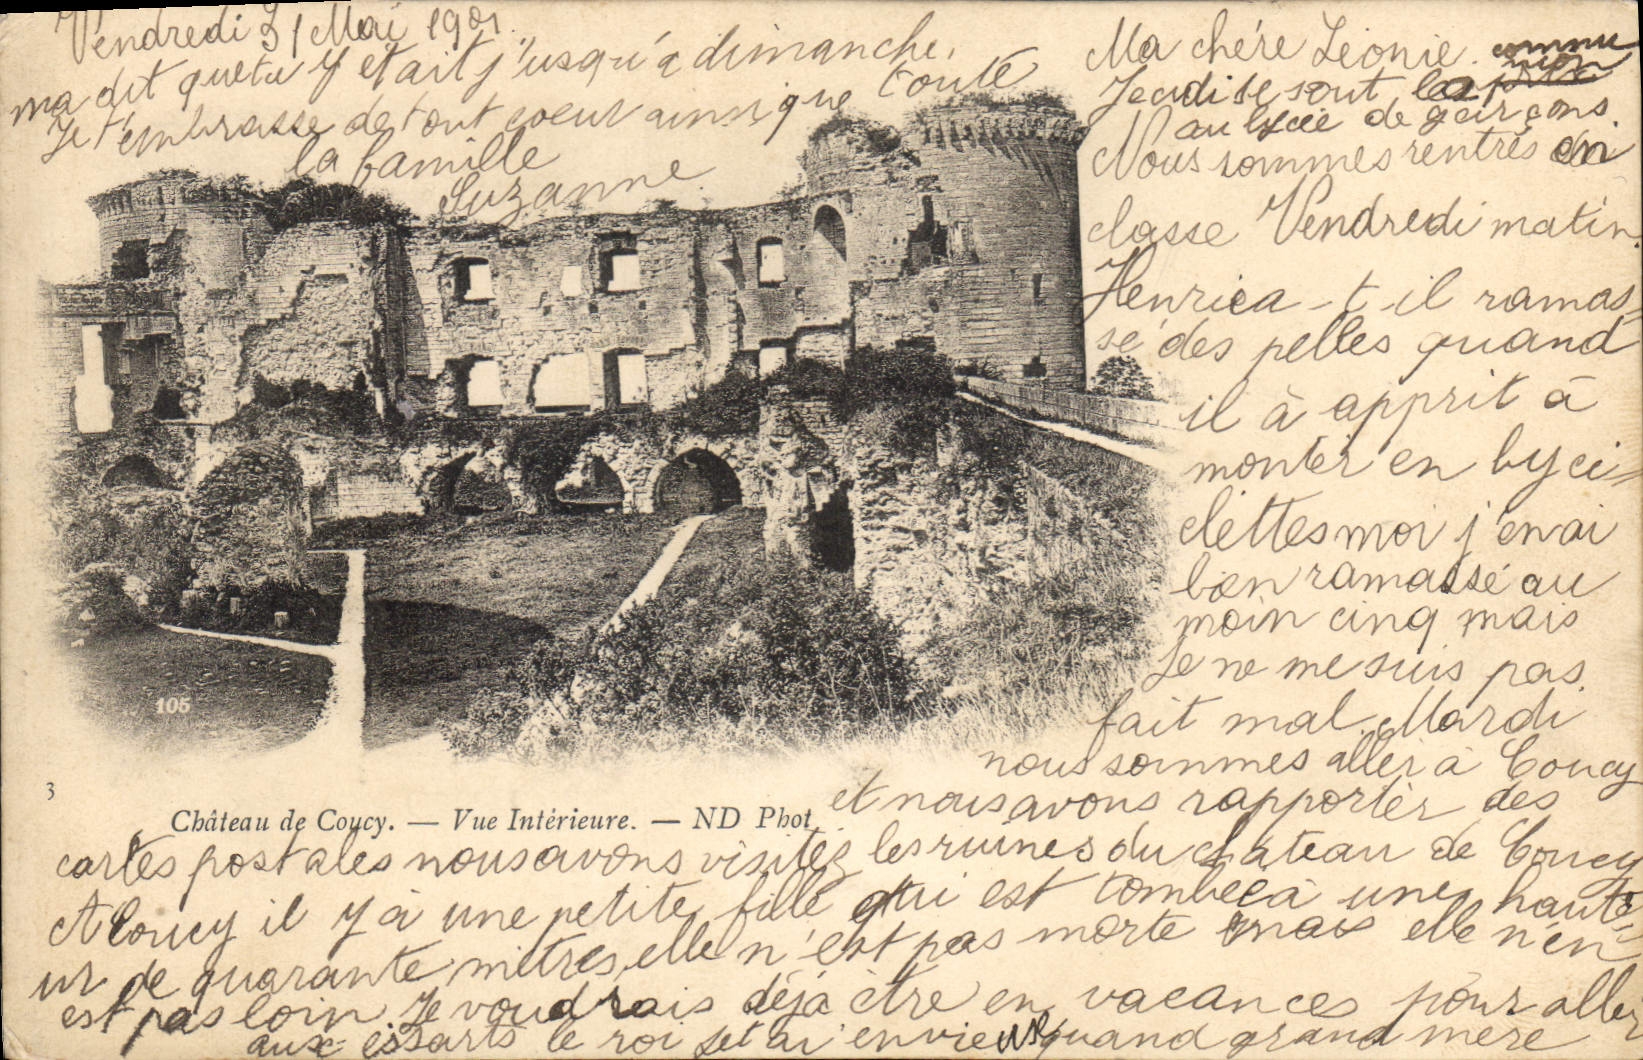 Vendredi 31 Mai 1901.
Ma chère Léonie.
Jeudi se sont la commu
nion
au lycée de garçons.
Nous sommes rentrés en
classe Vendredi matin.
Henri ca-t-il ramas
sé des pelles quand
il à apprit à
monter en byci
clettes moi j'en ai
bien ramassé au
moin cinq mais
Je ne me suis pas
fait mal. Mardi
nous sommes aller à Coucy
et nous avons rapporter des
cartes postales nous avons visités les ruines du château de Coucy
A Coucy il y à une petite fille qui est tombée à une haute
ur de quarante mètres, elle n'est pas morte mais elle n'en
est pas loin Je voudrais déjà être en vacances pour aller
aux essarts le roi Jetai envie quand grand mère
ma dit que tu y était jusqu'à dimanche.
Je t'embrasse de tout coeur ainsi que toute
la famille
Suzanne.
105
3
Château de Coucy. — Vue Intérieure. — ND Phot